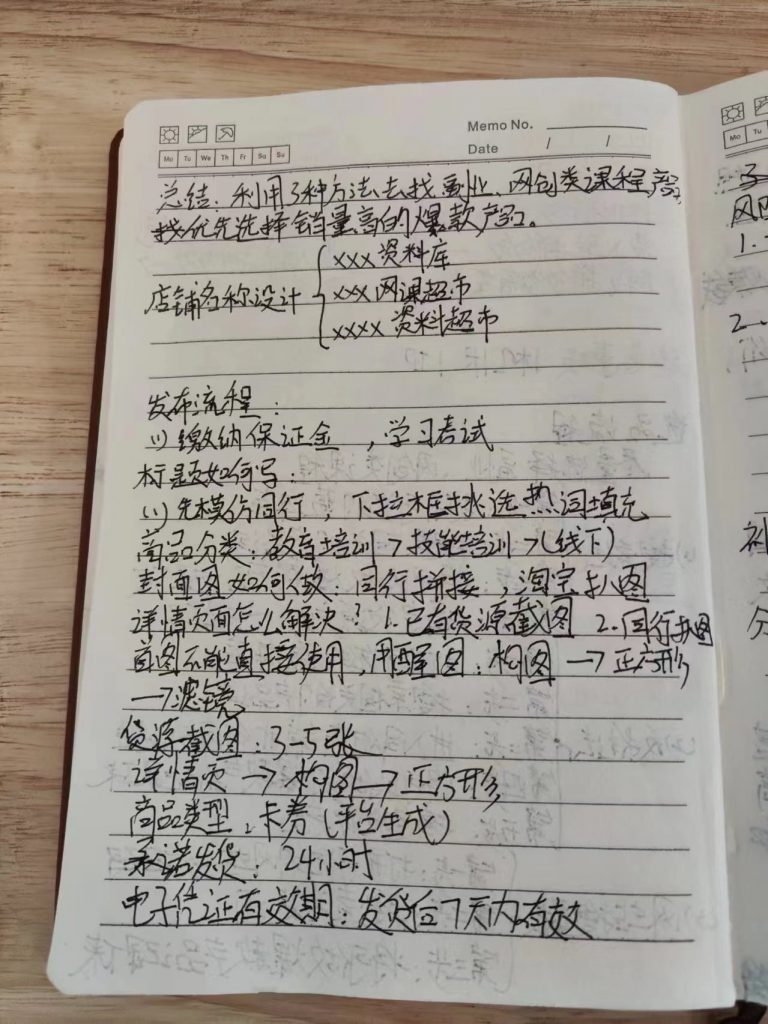 Memo No.
Date / /
Mo Tu We Th Fr Sa Su
总结：利用3种方法去找副业、网创类课程产品,
找优先选择销量高的爆款产品。
店铺名称设计
xxx 资料库
xxx 网课超市
xxxx 资料超市
发布流程：
(1) 缴纳保证金，学习考试
标题如何写：
(1) 先模仿同行，下拉框挑选热词填充
商品分类：教育培训>技能培训>(线下)
封面图如何做：同行拼接，淘宝扒图
详情页面怎么解决？1.已有货源截图 2.同行扒图
首图不能直接使用，用醒图：构图→正方形
→滤镜
货源截图：3-5张
详情页→构图→正方形
商品类型：卡券(平台生成)
承诺发货：24小时
电子凭证有效期：发货后7天内有效
Mo Tu
1.
2.
补
分